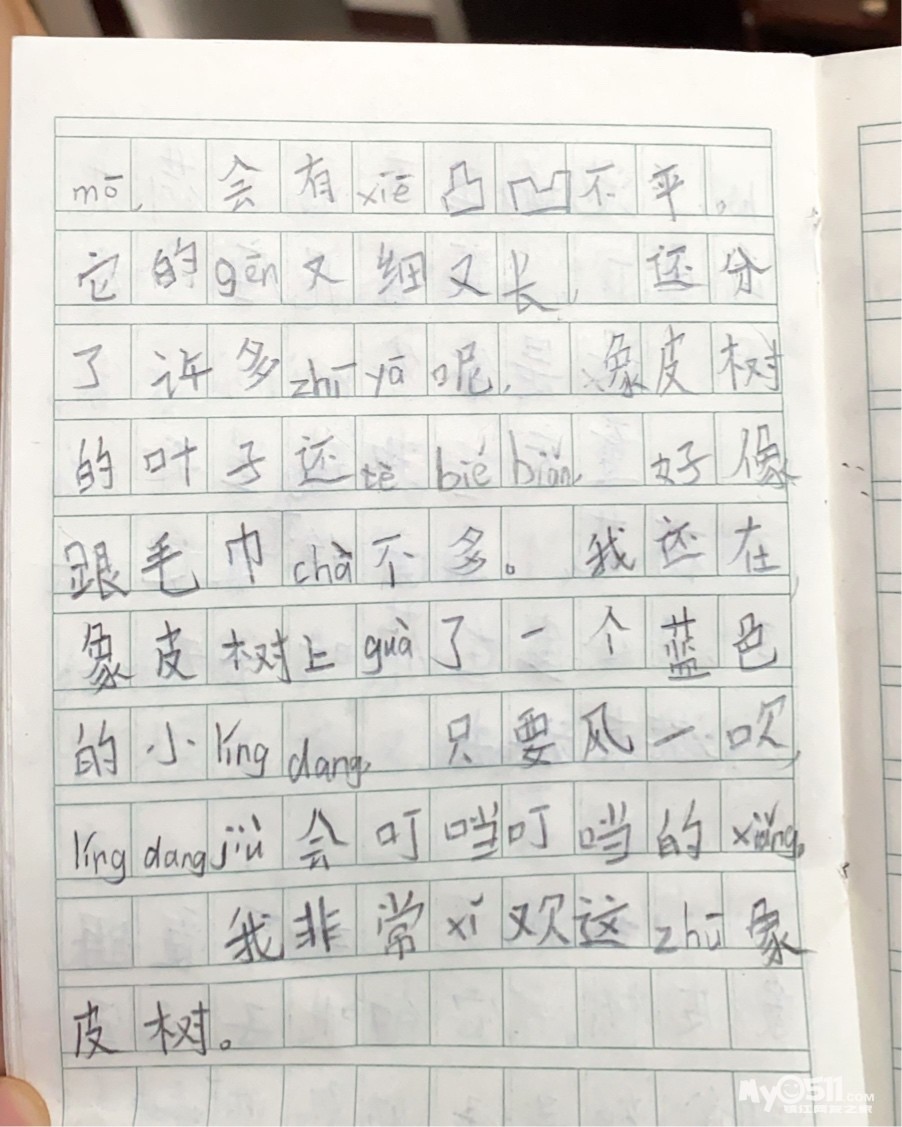 mō，会有xiē凸凹不平。
它的gēn又细又长，还分
了许多zhī yā呢，象皮树
的叶子还tè bié biǎn，好像
跟毛巾chà不多。我还在
象皮树上guà了一个蓝色
的小líng dang，只要风一吹，
líng dang jiù会叮当叮当的xiǎng。
我非常xǐ欢这zhū象
皮树。
My0511.COM